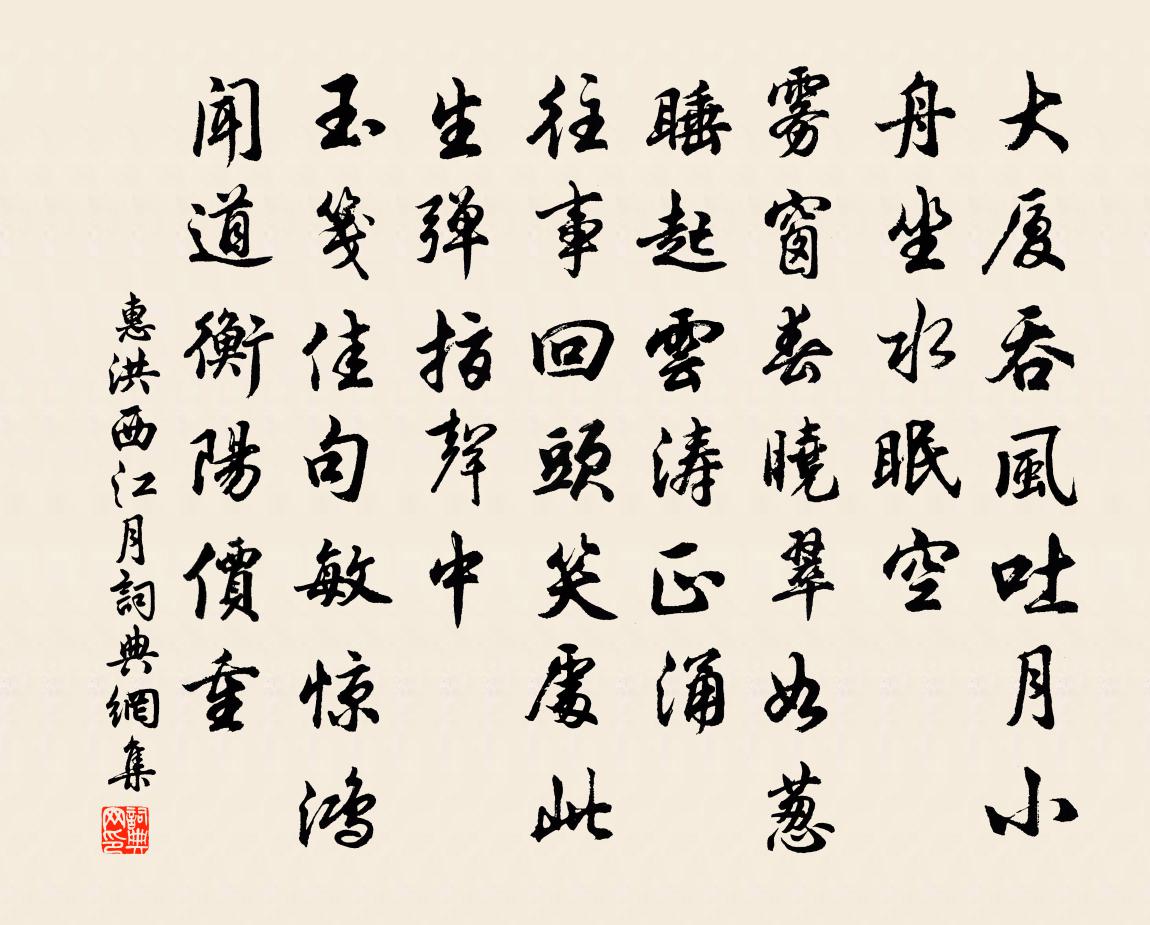 大厦吞風吐月小
舟坐水眠空
雾窗春曉翠如葱
睡起雲涛正涌
往事回頭笑處此
生弹指聲中
玉笺佳句敏惊鴻
闻道衡陽價重
惠洪西江月詞典網集
詞典網印